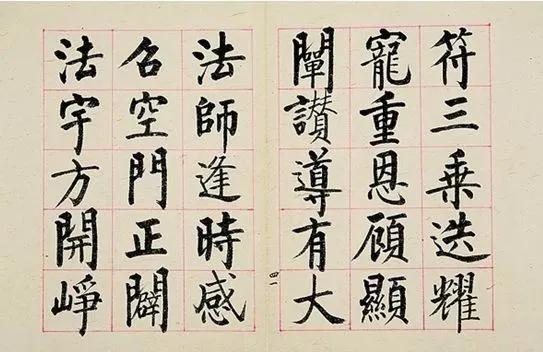 符三乘迭耀
寵重恩顧顯
闡讚導有大
四一
法師逢時感
召空門正闢
法宇方開崢